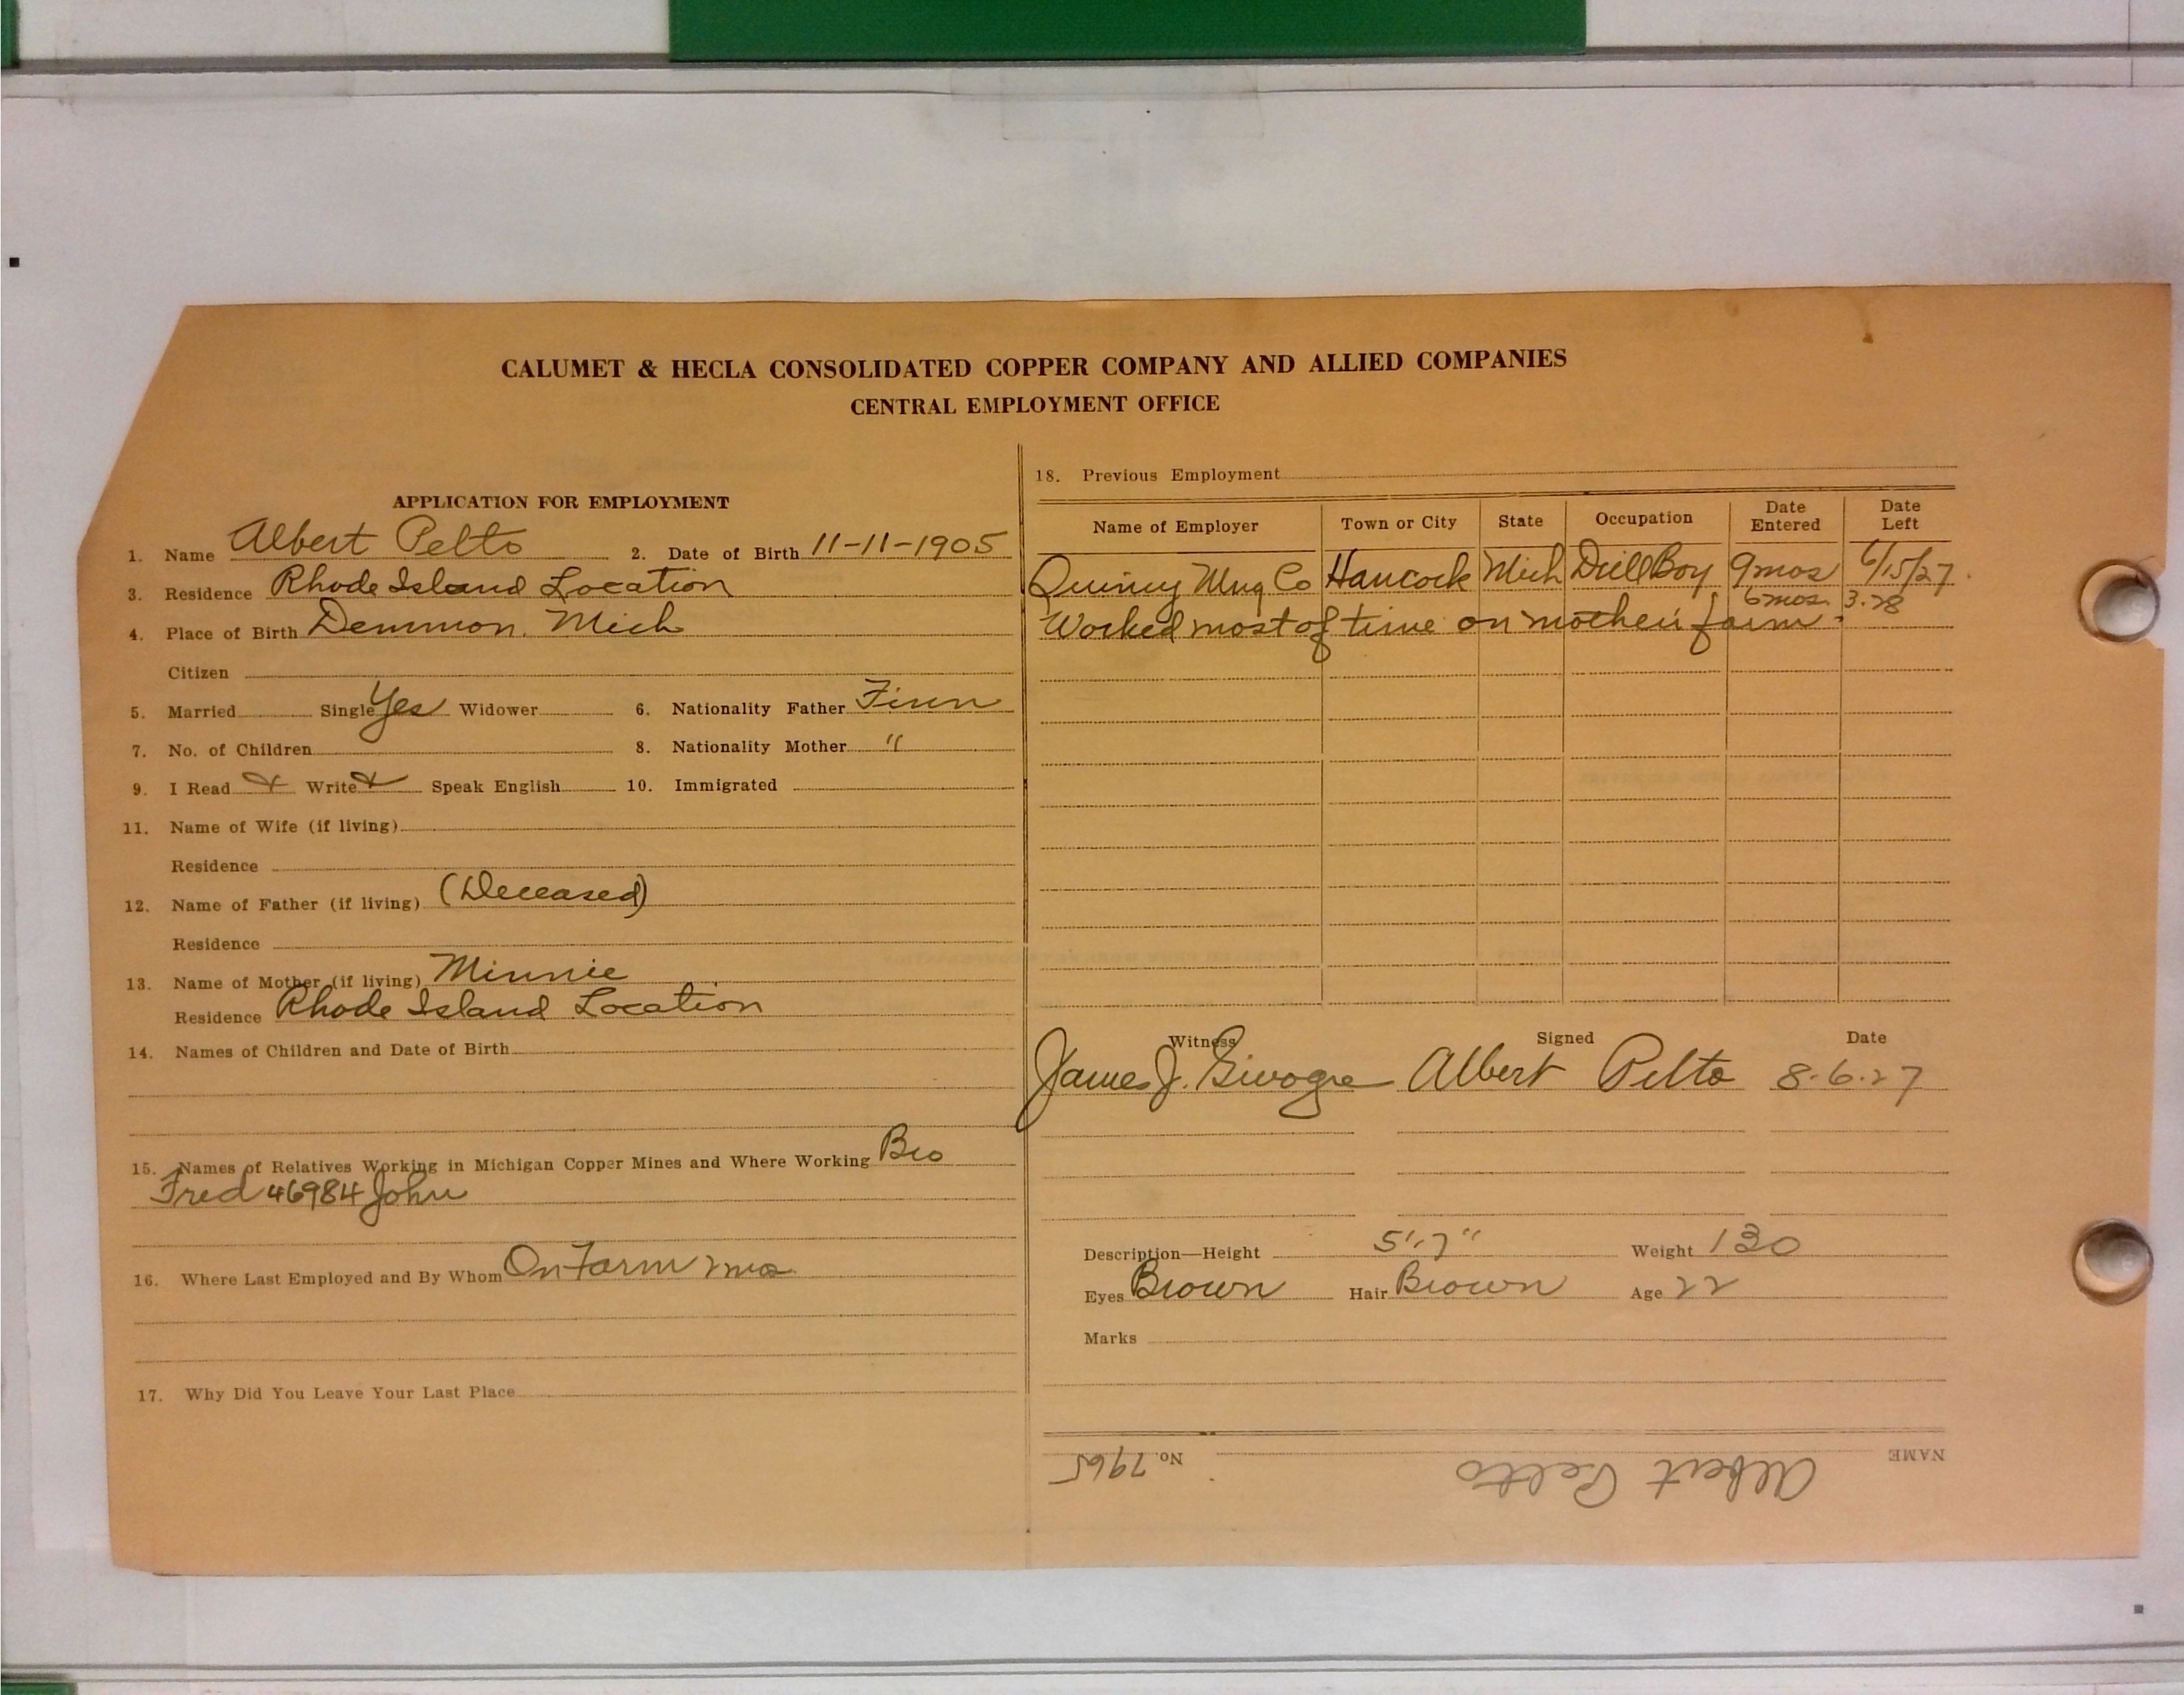 CALUMET & HECLA CONSOLIDATED COPPER COMPANY AND ALLIED COMPANIES
CENTRAL EMPLOYMENT OFFICE
APPLICATION FOR EMPLOYMENT
1. Name Albert Pelto 2. Date of Birth 11-11-1905
3. Residence Rhode Island Location
4. Place of Birth Demmon. Mich
Citizen
5. Married Single Yes Widower 6. Nationality Father Finn
7. No. of Children 8. Nationality Mother "
9. I Read & Write & Speak English 10. Immigrated
11. Name of Wife (if living)
Residence
12. Name of Father (if living) (Deceased)
Residence
13. Name of Mother (if living) Minnie
Residence Rhode Island Location
14. Names of Children and Date of Birth
15. Names of Relatives Working in Michigan Copper Mines and Where Working Bro
Fred 46984 John
16. Where Last Employed and By Whom On Farm 2 mo.
17. Why Did You Leave Your Last Place
18. Previous Employment
Name of Employer Town or City State Occupation Date Entered Date Left
Quincy Mng Co Hancock Mich Drill Boy 9 mos 6/15/27
6 mos. 3.28
Worked most of time on mother's farm.
Witness Signed Date
James J. Albert Pelto 8-6-27
Description—Height 5'-7" Weight 130
Eyes Brown Hair Brown Age 22
Marks
NAME Albert Pelto No. 7965